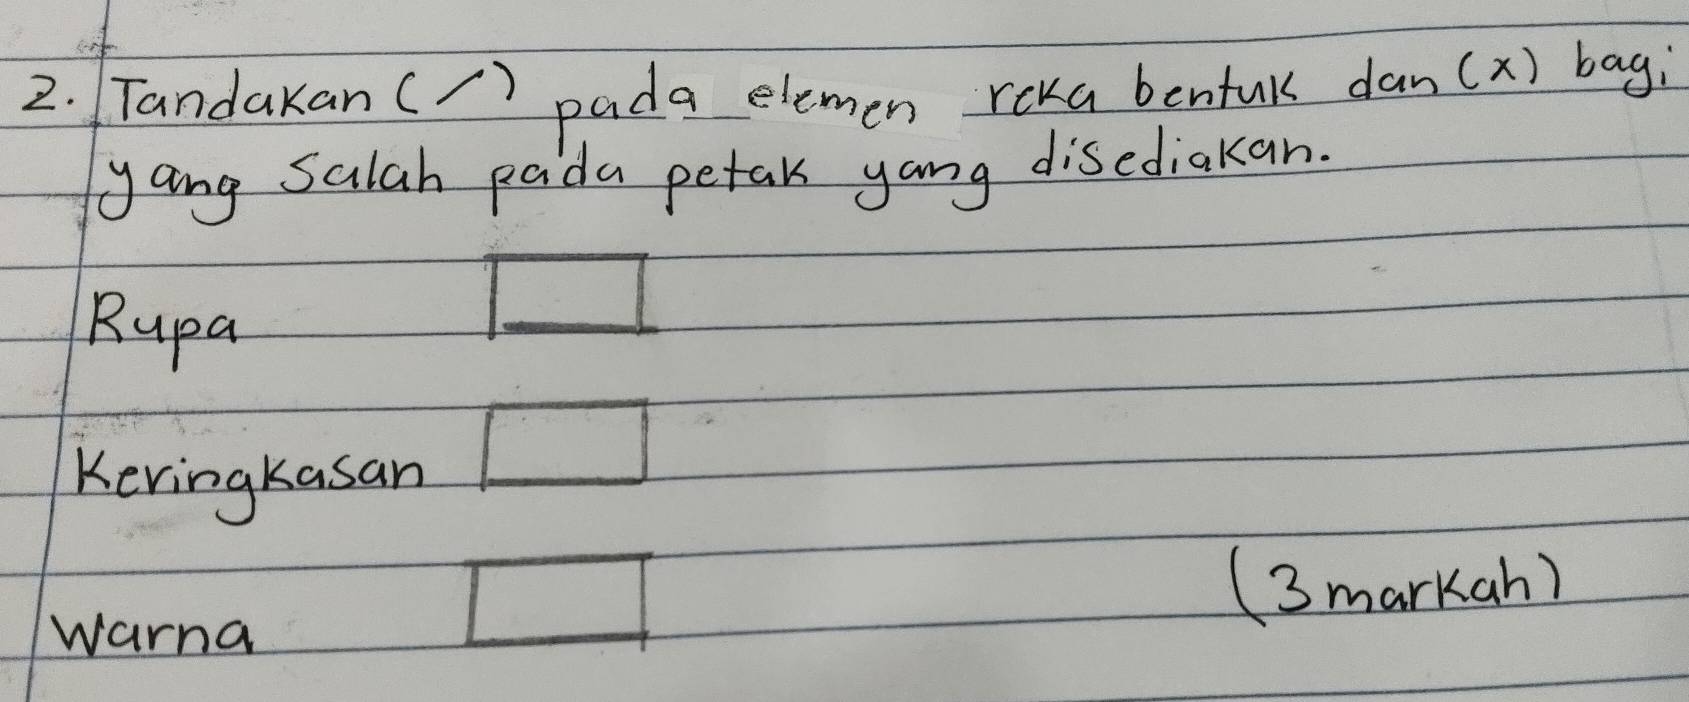 2. Tandakan (/) pada elemen reka bentuk dan (x) bagi
yang salah pada petak yang disediakan.
Rupa
Keringkasan
Warna
(3 markah)